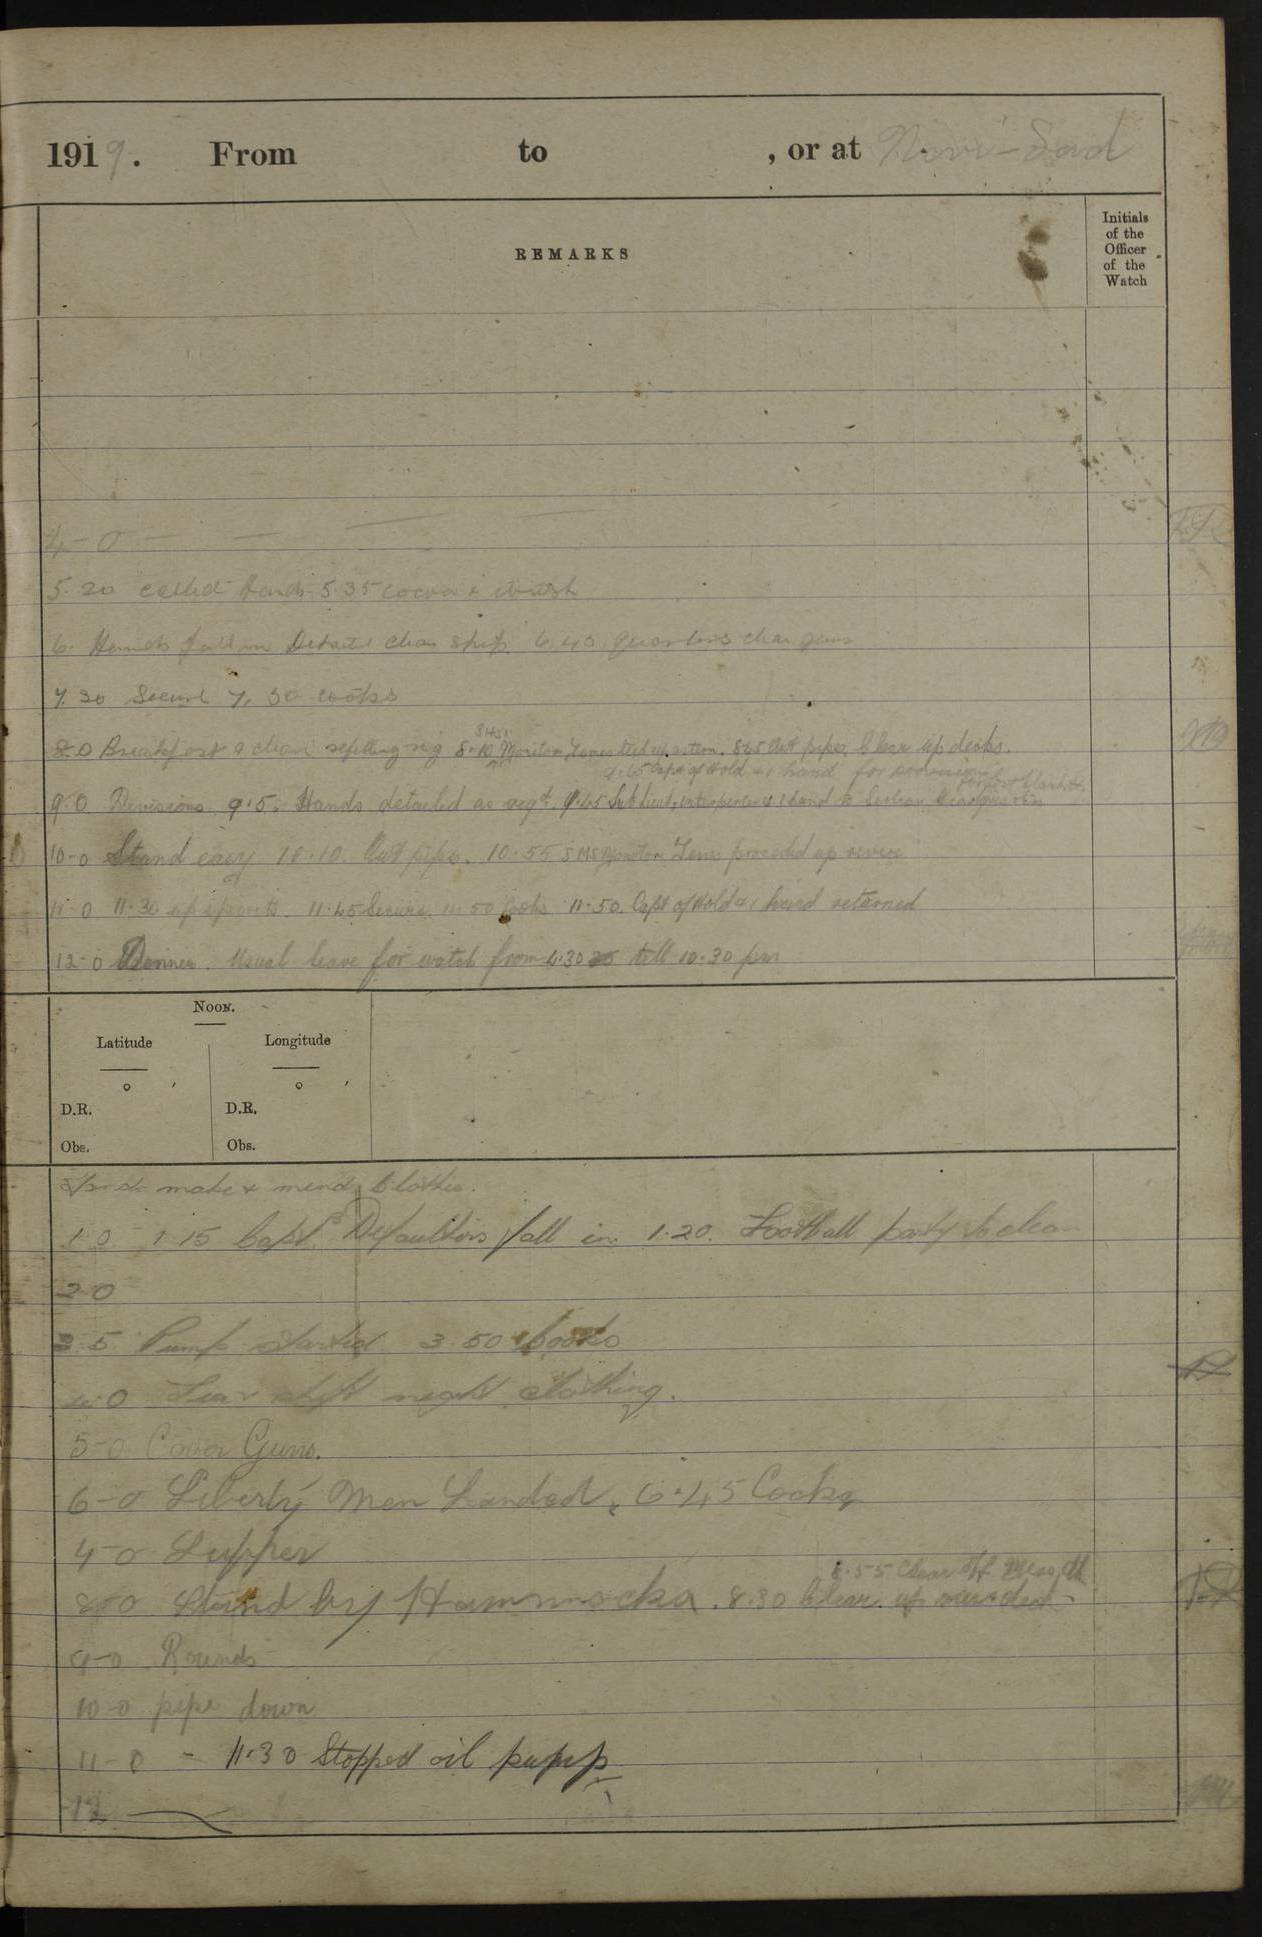 1919. From to , or at Novi-Sad
REMARKS
Initials
of the
Officer
of the
Watch
4-0
5.20 called Hands 5.35 cocoa & wash
6. Hands fall in Detailed clean ship. 6.45 Quarters clean guns
7.30 Secure 7.50 cooks
8.0 Breakfast & clean rig 8.10 Monitor astern. 8.45 Out pipes, Clear up decks.
9.45 Capt of Hold & 1 hand for provisions
9.0 Divisions. 9.5. Hands detailed as reqd. 9.45 Sub Lieut, interpreter & 1 hand to Serbian Headquarters
10-0 Stand easy 10.10. Out pipes. 10.55 SMS Monitor proceeded up river
11-0 11.30 up spirits. 11.45 Secure. 11.50 Cooks 11.50. Capt of Hold & 1 hand returned
12-0 Dinner. Usual leave for watch from 4.30 till 10.30 pm
Noon.
Latitude Longitude
° ′ ° ′
D.R. D.R.
Obs. Obs.
Hands make & mend Clothes.
1.0 1.15 Capt Defaulters fall in. 1.20. Football party to clean
2-0
3.5 Pump started 3.50 Cooks
4.0 Tea shift night clothing.
5-0 Cover Guns.
6-0 Liberty Men Landed, 6.45 Cooks
Supper
8.55 Clear
8-0 Stand by Hammocks. 8.30 Clear up
9-0 Rounds
10-0 pipe down
11-0 - 11.30 Stopped oil pump
12